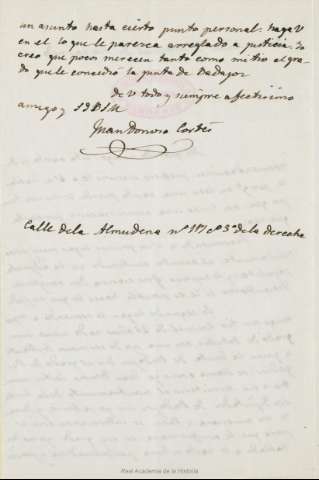 un asunto hasta cierto punto personal. haga V
en el lo que le parezca arreglado a justicia. Yo
creo que pocos merecen tanto como mi tio el gra-
do que le concedió la junta de Badajoz
de V todo y siempre afectisimo
amigo y S S Q S M B
Juan Donoso Cortés
Calle de la Almudena nº 119 cº 3º de la derecha
Real Academia de la Historia